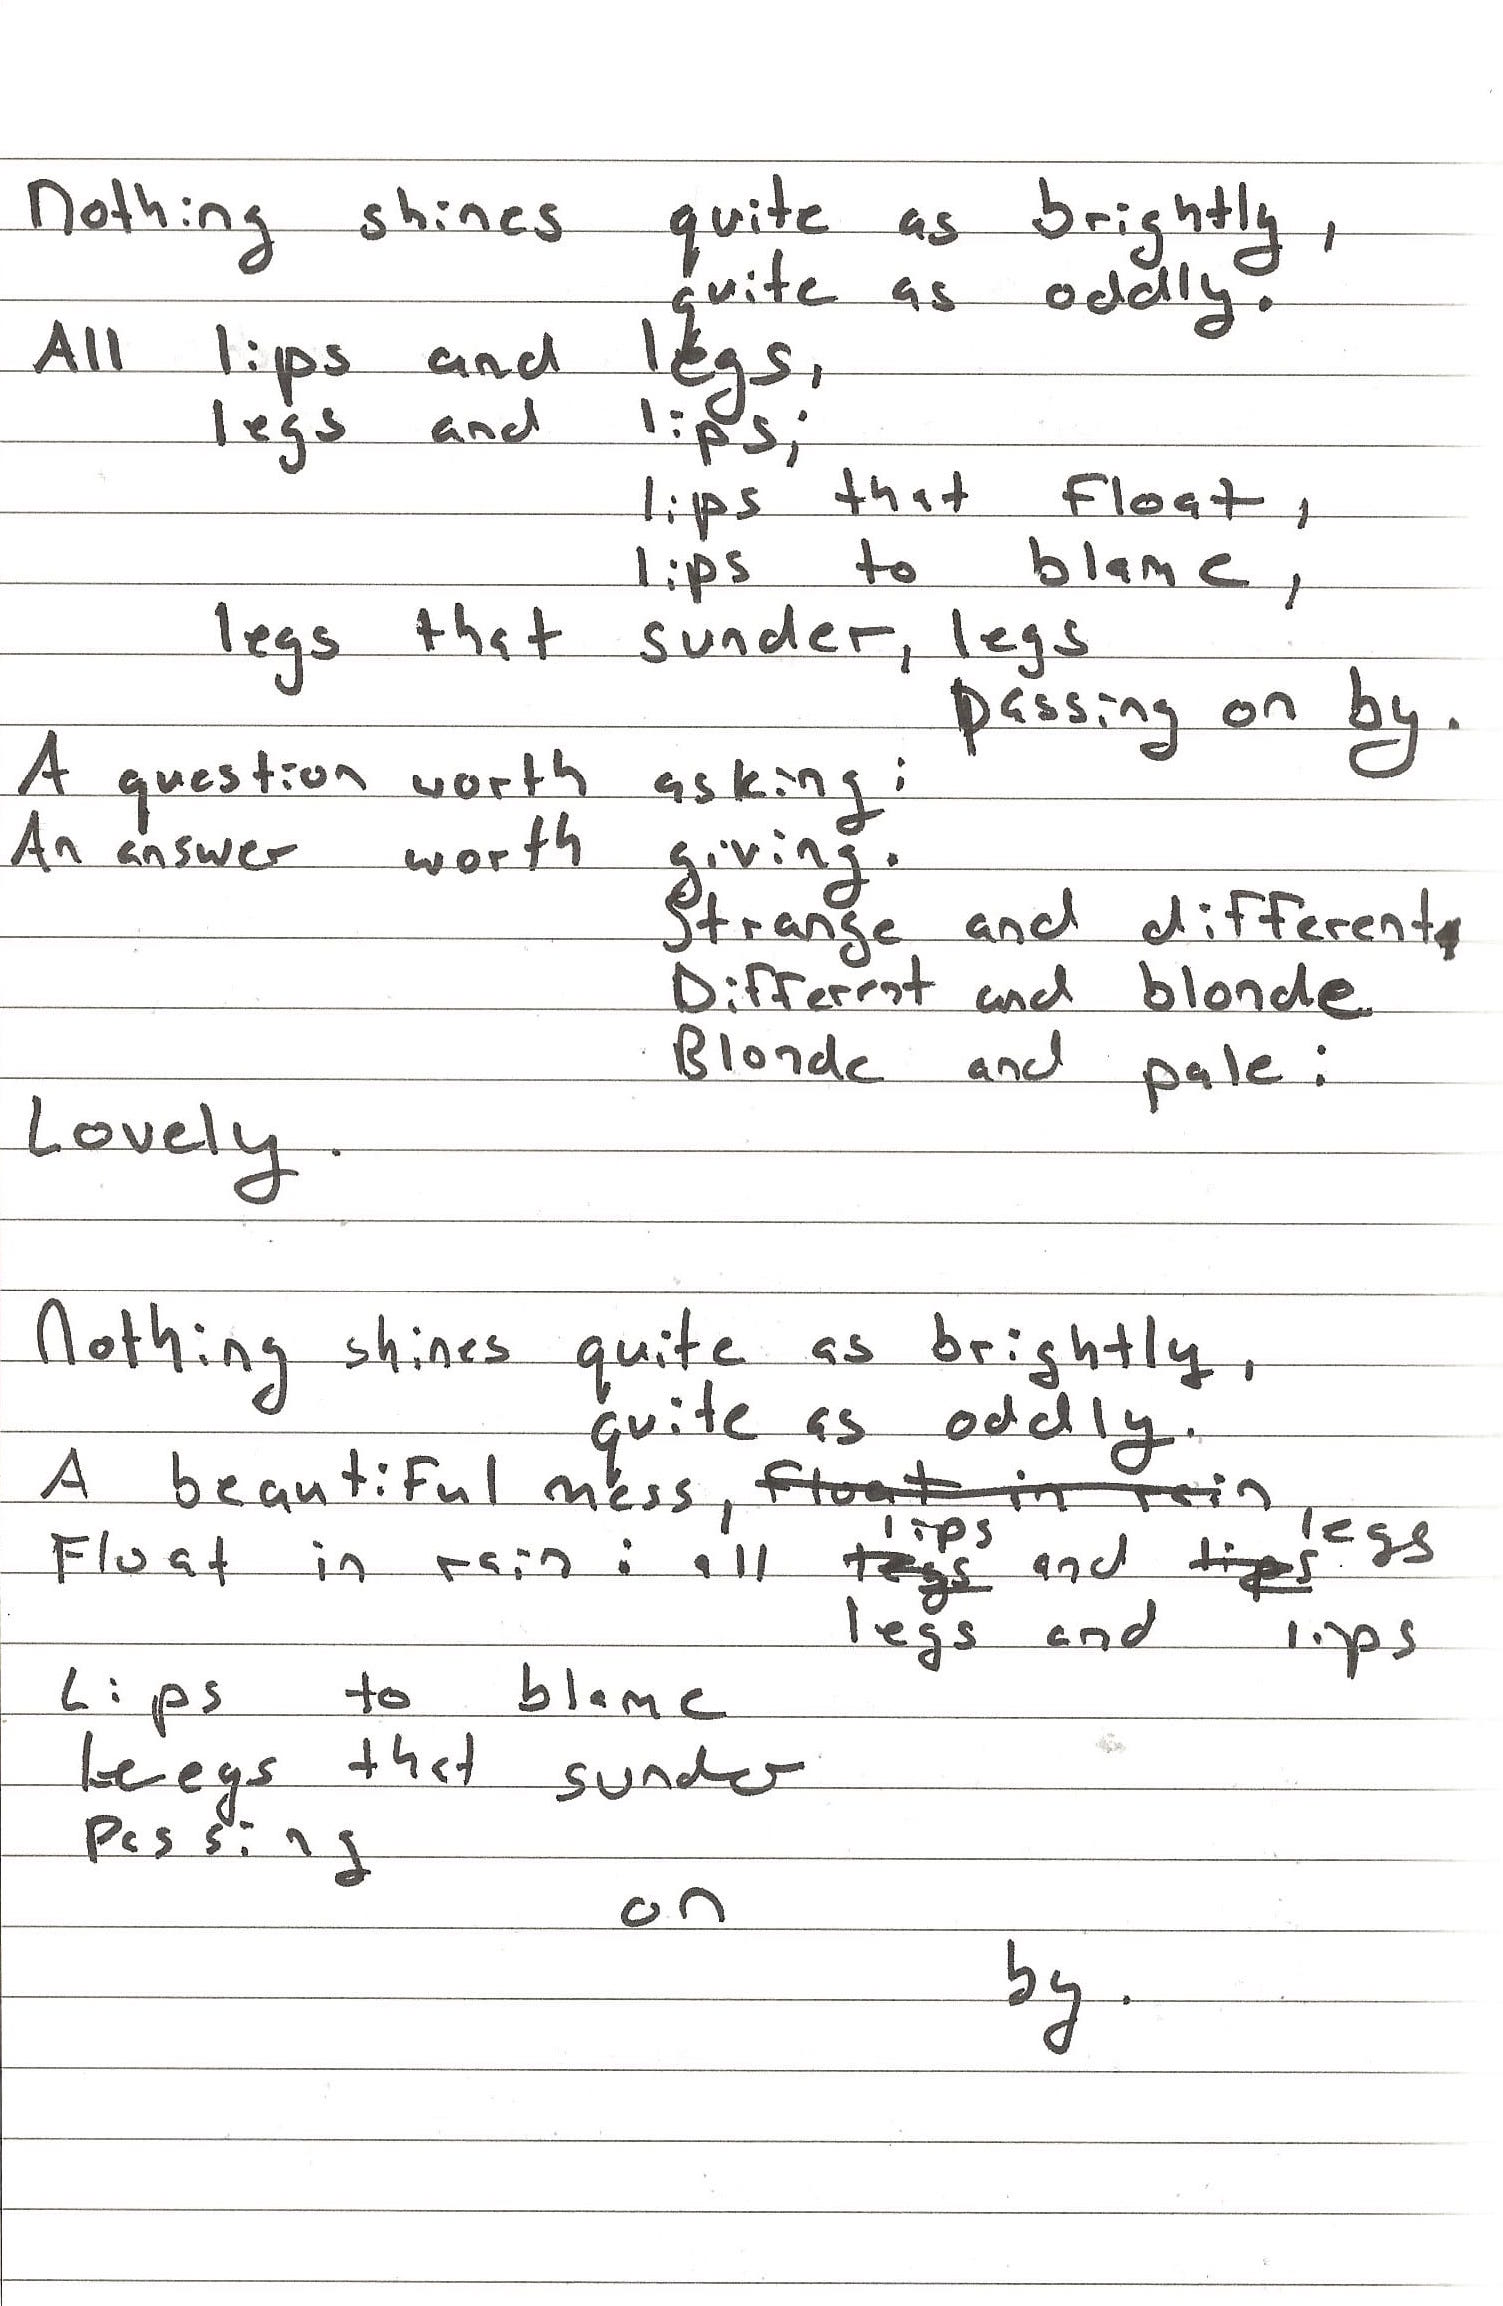 Nothing shines quite as brightly,
quite as oddly.
All lips and legs,
legs and lips;
lips that float,
lips to blame,
legs that sunder, legs
passing on by.
A question worth asking;
An answer worth giving.
Strange and different,
Different and blonde
Blonde and pale:
Lovely.
Nothing shines quite as brightly,
quite as oddly.
A beautiful mess, float in rain,
lips legs
Float in rain: all legs and lips
legs and lips
Lips to blame
Legs that sunder
Passing
on
by.